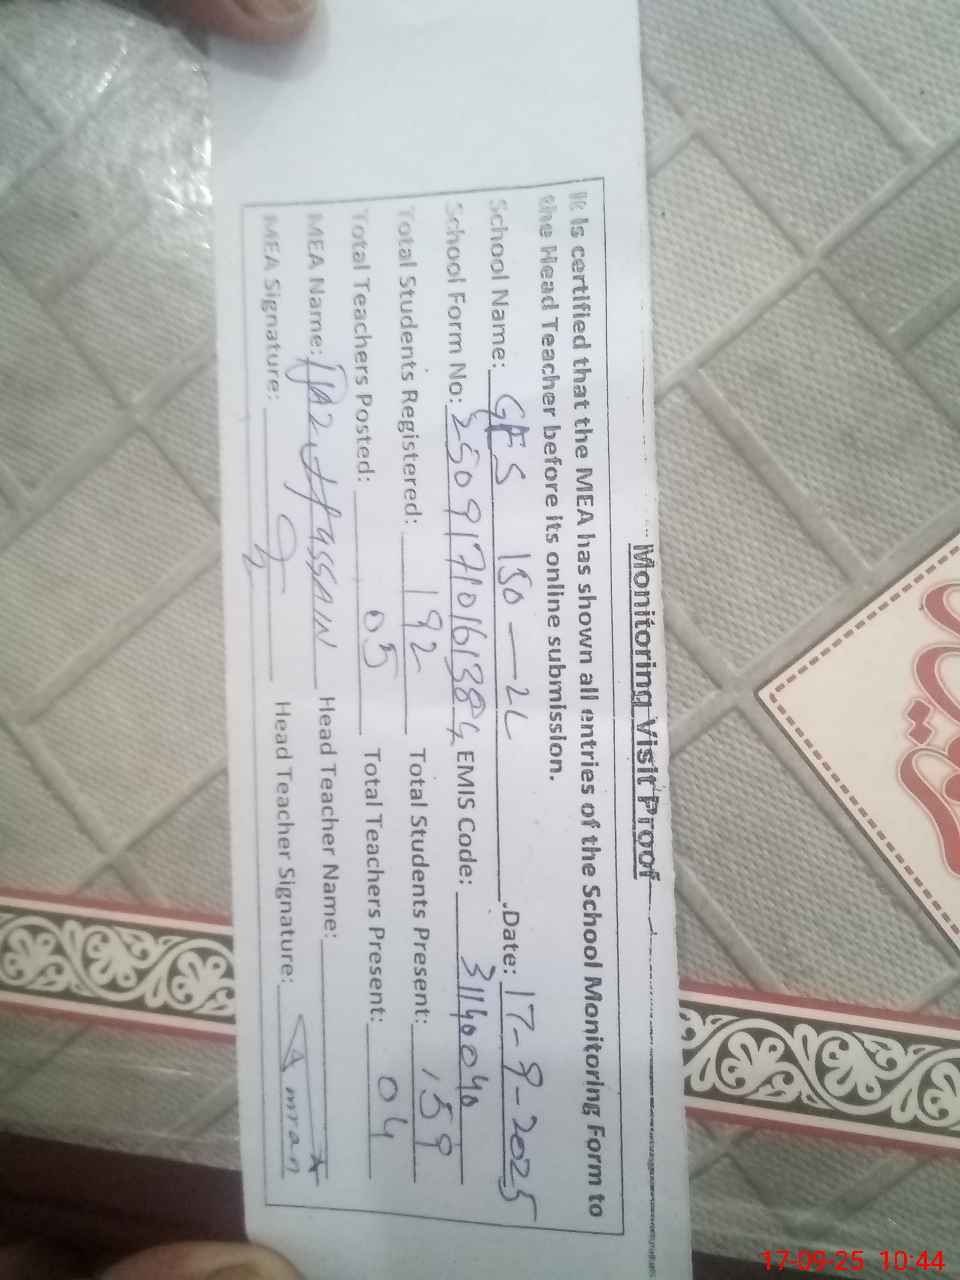 Monitoring Visit Proof
It is certified that the MEA has shown all entries of the School Monitoring Form to
the Head Teacher before its online submission.
School Name: GES 150-2L .Date: 17-9-2025
School Form No: EMIS Code: 31140040
Total Students Registered: 192 Total Students Present: 159
Total Teachers Posted: 05 Total Teachers Present: 04
MEA Name: HASSAIN Head Teacher Name:
MEA Signature: Head Teacher Signature: Amran
17-09-25 10:44